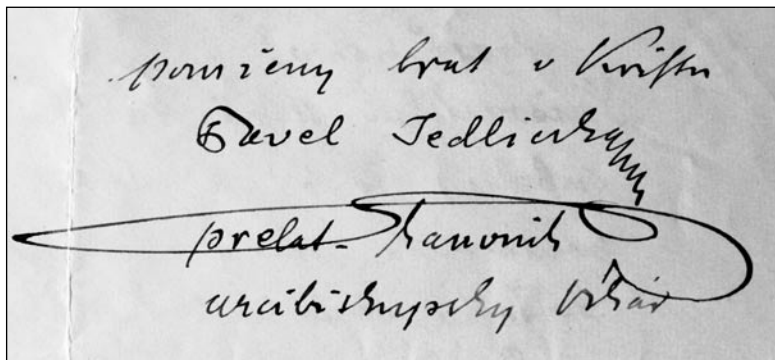 ponížený brat v Kristu
Pavel Jedlicska
prelát-kanonik
arcibiskupský vikár